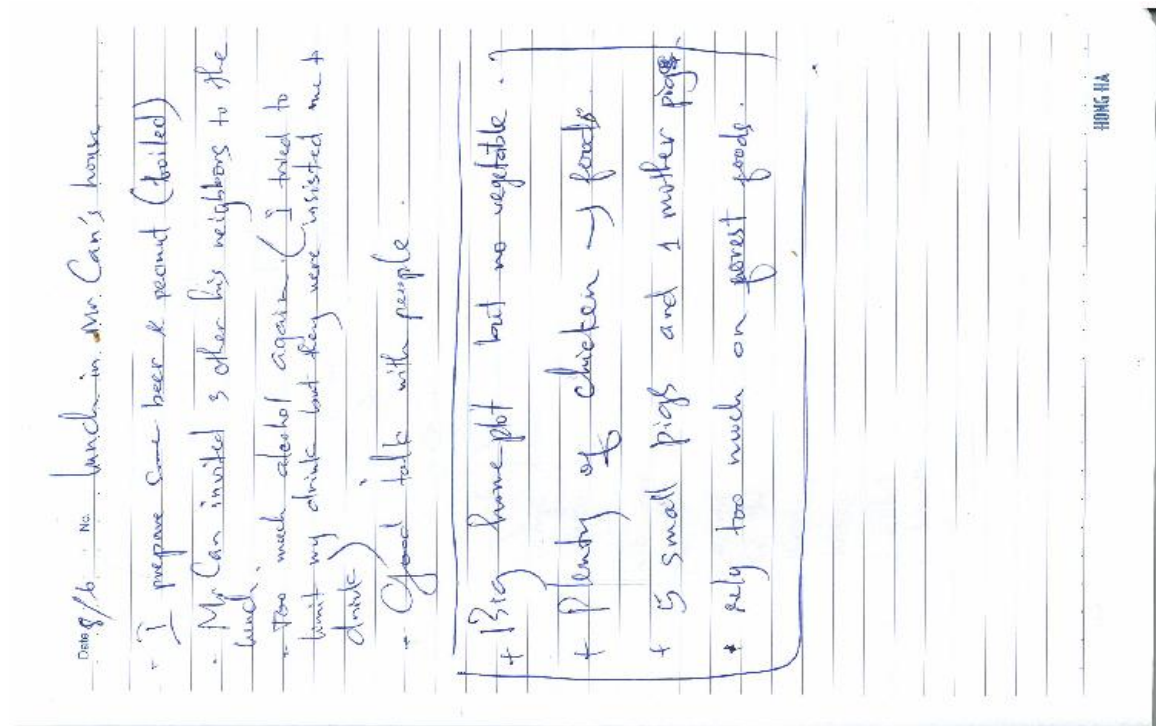 Date 8/6 No. lunch in Mr. Can's house
- I prepare some beer & peanut (boiled)
- Mr. Can invited 3 other his neighbors to the
lunch.
- Too much alcohol again. (I tried to
limit my drink but they were insisted me to
drink)
- Good talk with people
+ Big home plot but no vegetable.
+ Plenty of chicken → foods.
+ 5 small pigs and 1 mother pigs.
* rely too much on forest foods.
HONG HA